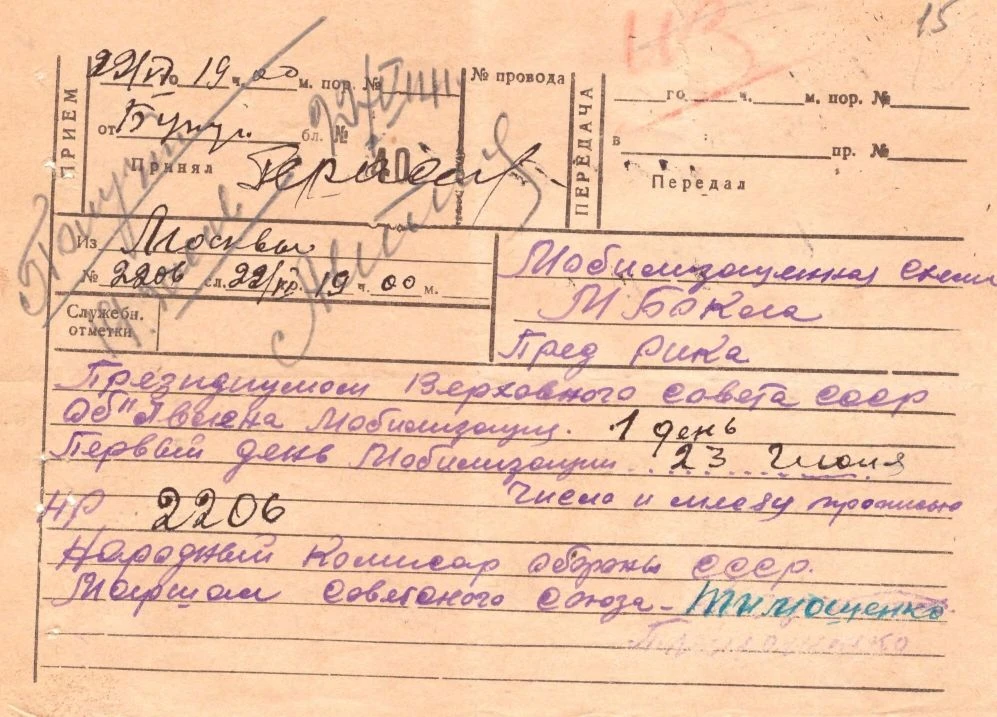 15
НЗ
ПРИЕМ
22/VI го 19 ч. 00 м. пор. №
от Бугул. бл. №
Принял
№ провода
ПЕРЕДАЧА
го ч. м. пор. №
в пр. №
Передал
Получил
Из Москвы
№ 2206 сл. 22/ 19 ч. 00 м.
Служебн. отметки
Мобилизационная
Пред рика
Президиумом Верховного совета СССР
Об"явлена Мобилизация. 1 день
Первый день Мобилизации 23 Июня
Число и прописью
НР 2206
Народный Комисар Обороны СССР.
Маршал Советского Союза - Тимошенко